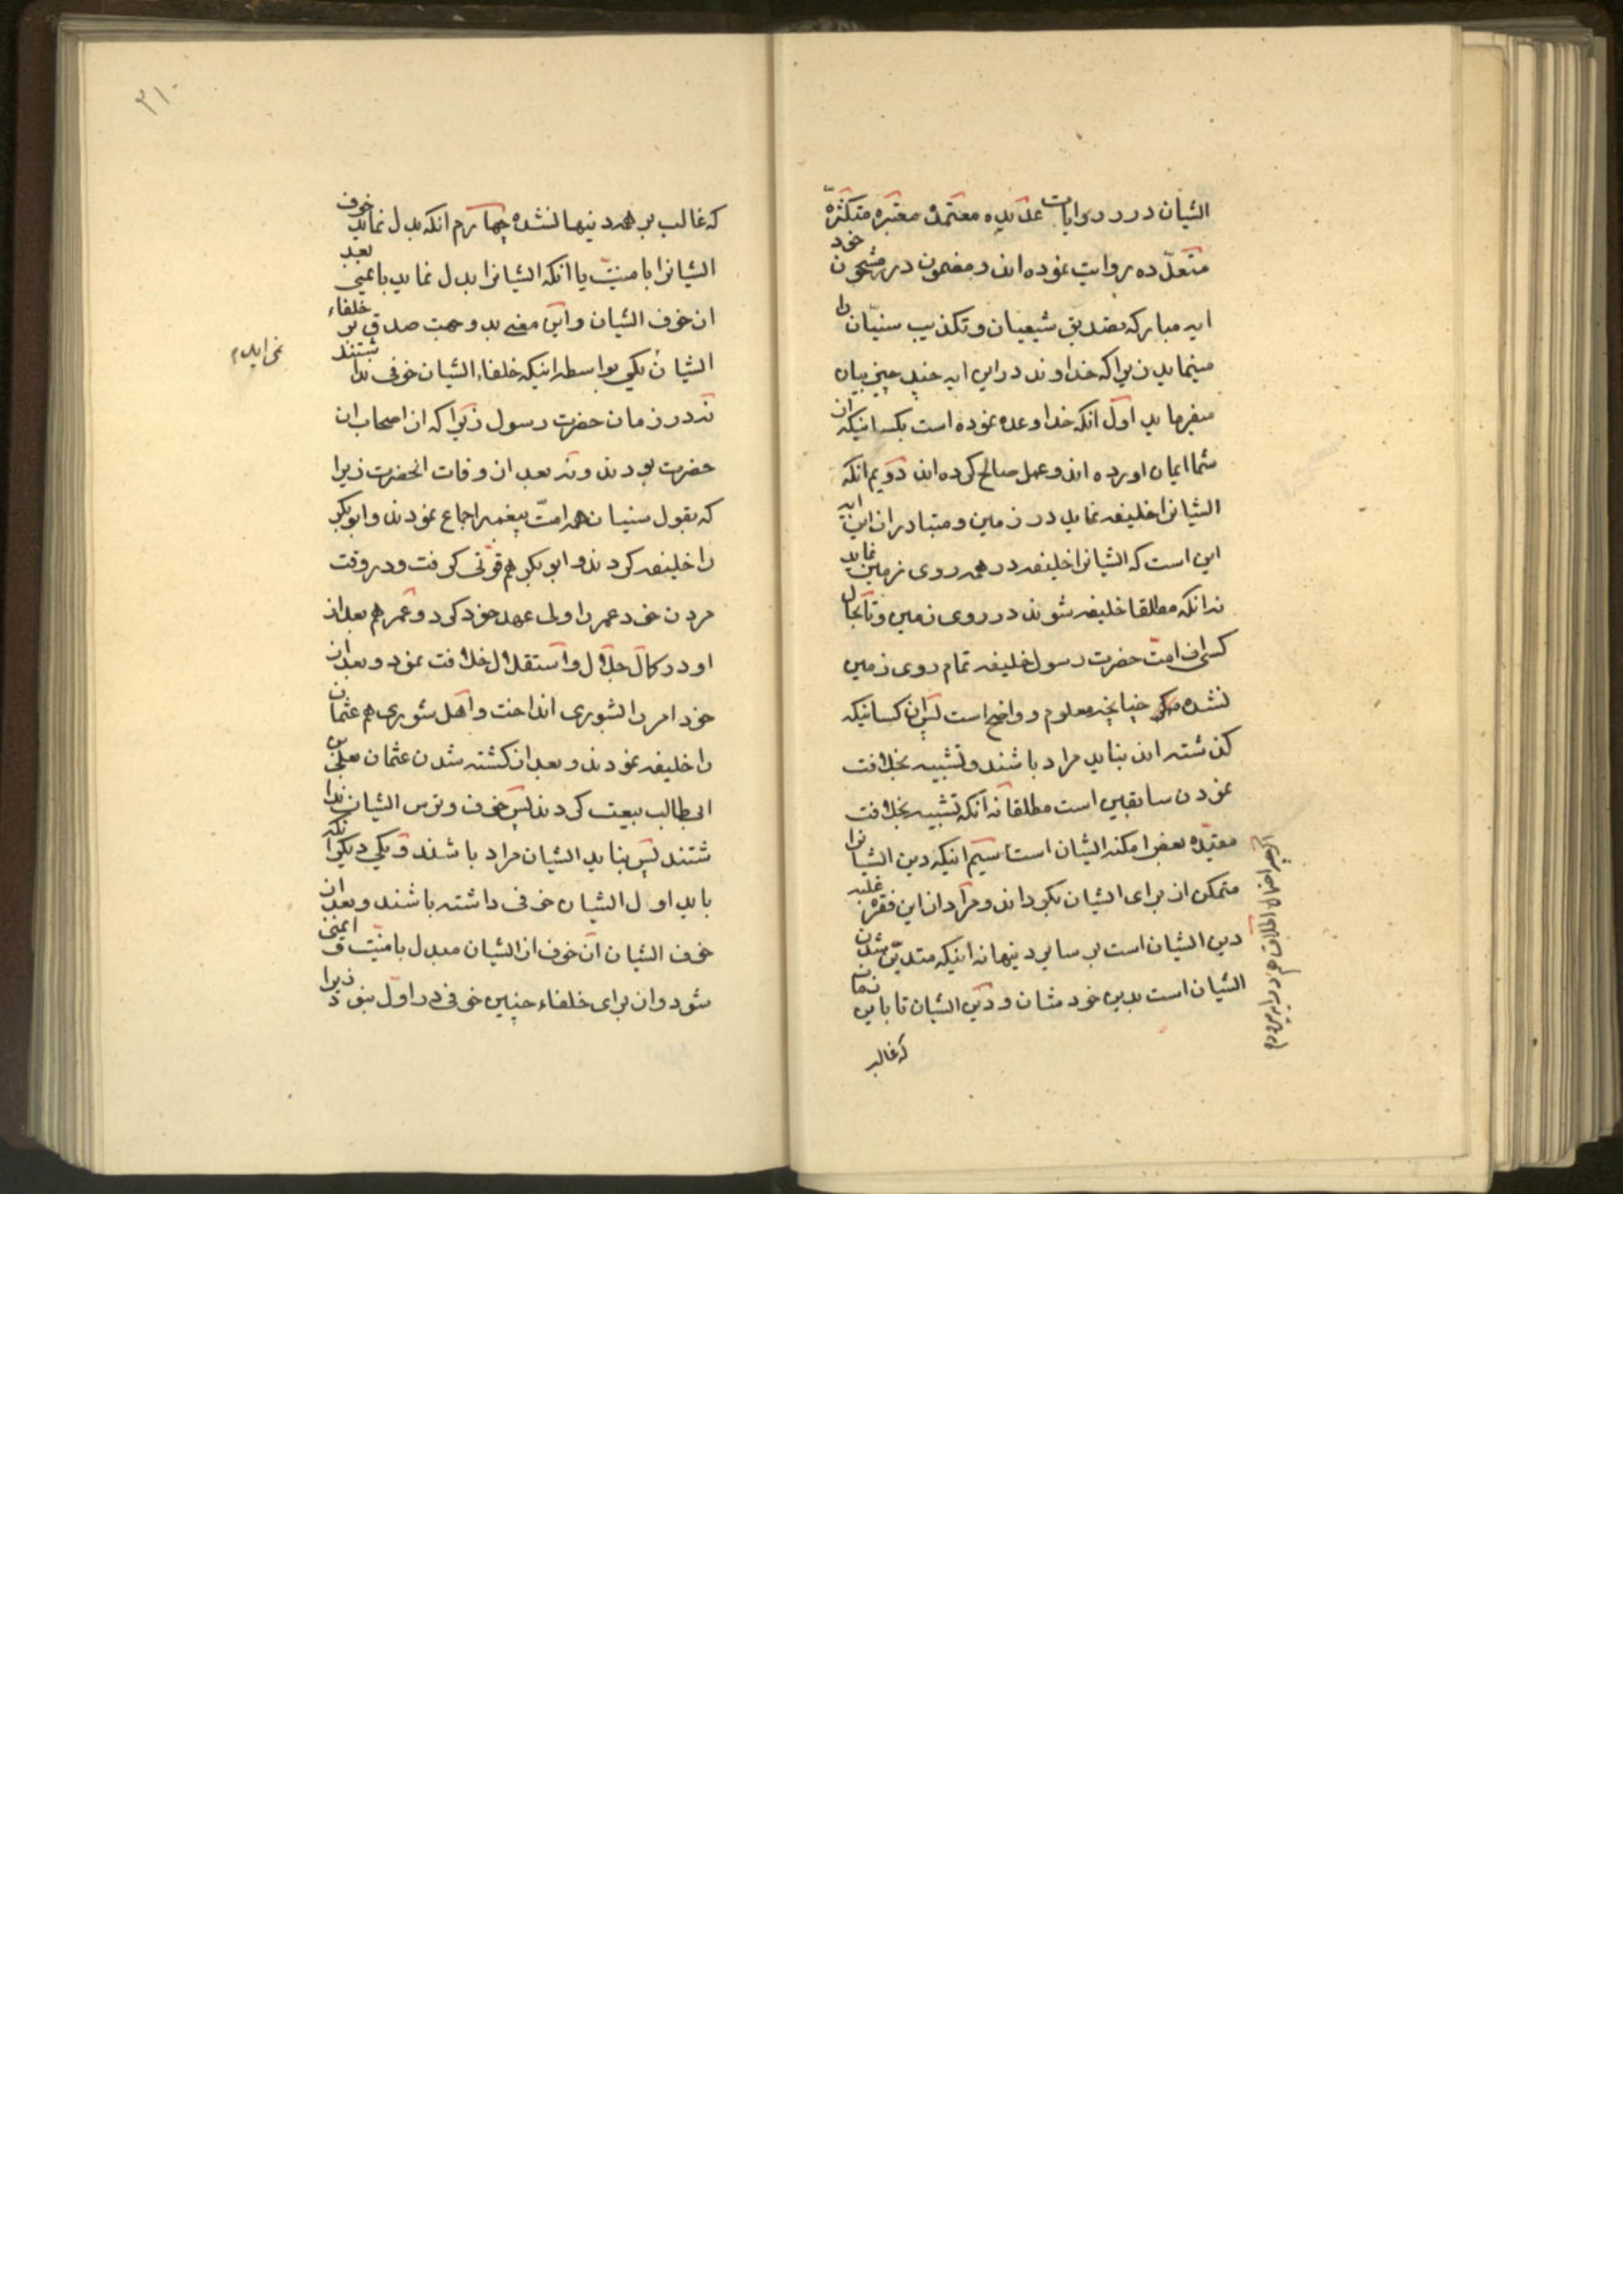 ایشان در روایات عدیده معتمده معتبره متکثره
متعدده روایت نموده اند و مضمون درر مشحون خود
ایه مبارکه تصدیق شیعیان و تکذیب سنیان را
مینماید زیرا که خداوند در این ایه چند چیز بیان
میفرماید اول انکه خدا وعده نموده است بکسانیکه از
شما ایمان اورده اند و عمل صالح کرده اند دویم انکه
ایشانرا خلیفه نماید در زمین و متبادر از این ایه
این است که ایشانرا خلیفه در همه روی زمین نماید
نه انکه مطلقا خلیفه شوند در روی زمین و تا بحال
کسی از امت حضرت رسول خلیفه تمام روی زمین
نشده چنانچه معلوم و واضح است پس ان کسانیکه
کذشته اند نباید مراد باشند و تشبیه بخلافت
نمودن سابقین است مطلقا نه انکه تشبیه بخلافت
مقیده بعض امکنه ایشان است سیم اینکه دین ایشانرا
متمکن از برای ایشان بکرداند و مراد از این فقره غلبه
دین ایشان است بر سایر دینها نه اینکه متدین شدن
ایشان است بدین خودشان و دین ایشان تا باین زمان
که غالب
۳۱۰
که غالب بر همه دینها نشده چهارم انکه بدل نماید خوف
ایشانرا بامنیت یا انکه ایشانرا بدل نماید بایمنی بعد
از خوف ایشان و این معنی بدو جهت صدق بر خلفاء
ایشان نمی اید یکی بواسطه اینکه خلفاء ایشان خوفی نداشتند
نه در زمان حضرت رسول زیرا که از اصحاب ان
حضرت بودند و نه بعد از وفات انحضرت زیرا
که بقول سنیان همه امت پیغمبر اجماع نمودند و ابوبکر
را خلیفه کردند و ابوبکر هم قوتی کرفت و در وقت
مردن خود عمر را ولی عهد خود کرد و عمر هم بعد از
او در کمال جلال و استقلال خلافت نمود و بعد از
خود امر را بشوری انداخت و اهل شوری هم عثمان
را خلیفه نمودند و بعد از کشته شدن عثمان بعلی بن
ابیطالب بیعت کردند پس خوف و ترس ایشان نداشتند
پس نباید ایشان مراد باشند و یکی دیکر انکه
باید اول ایشان خوفی داشته باشند و بعد از
خوف ایشان آن خوف از ایشان مبدل بامنیت و ایمنی
شود و از برای خلفاء چنین خوفی در اول نبود زیرا